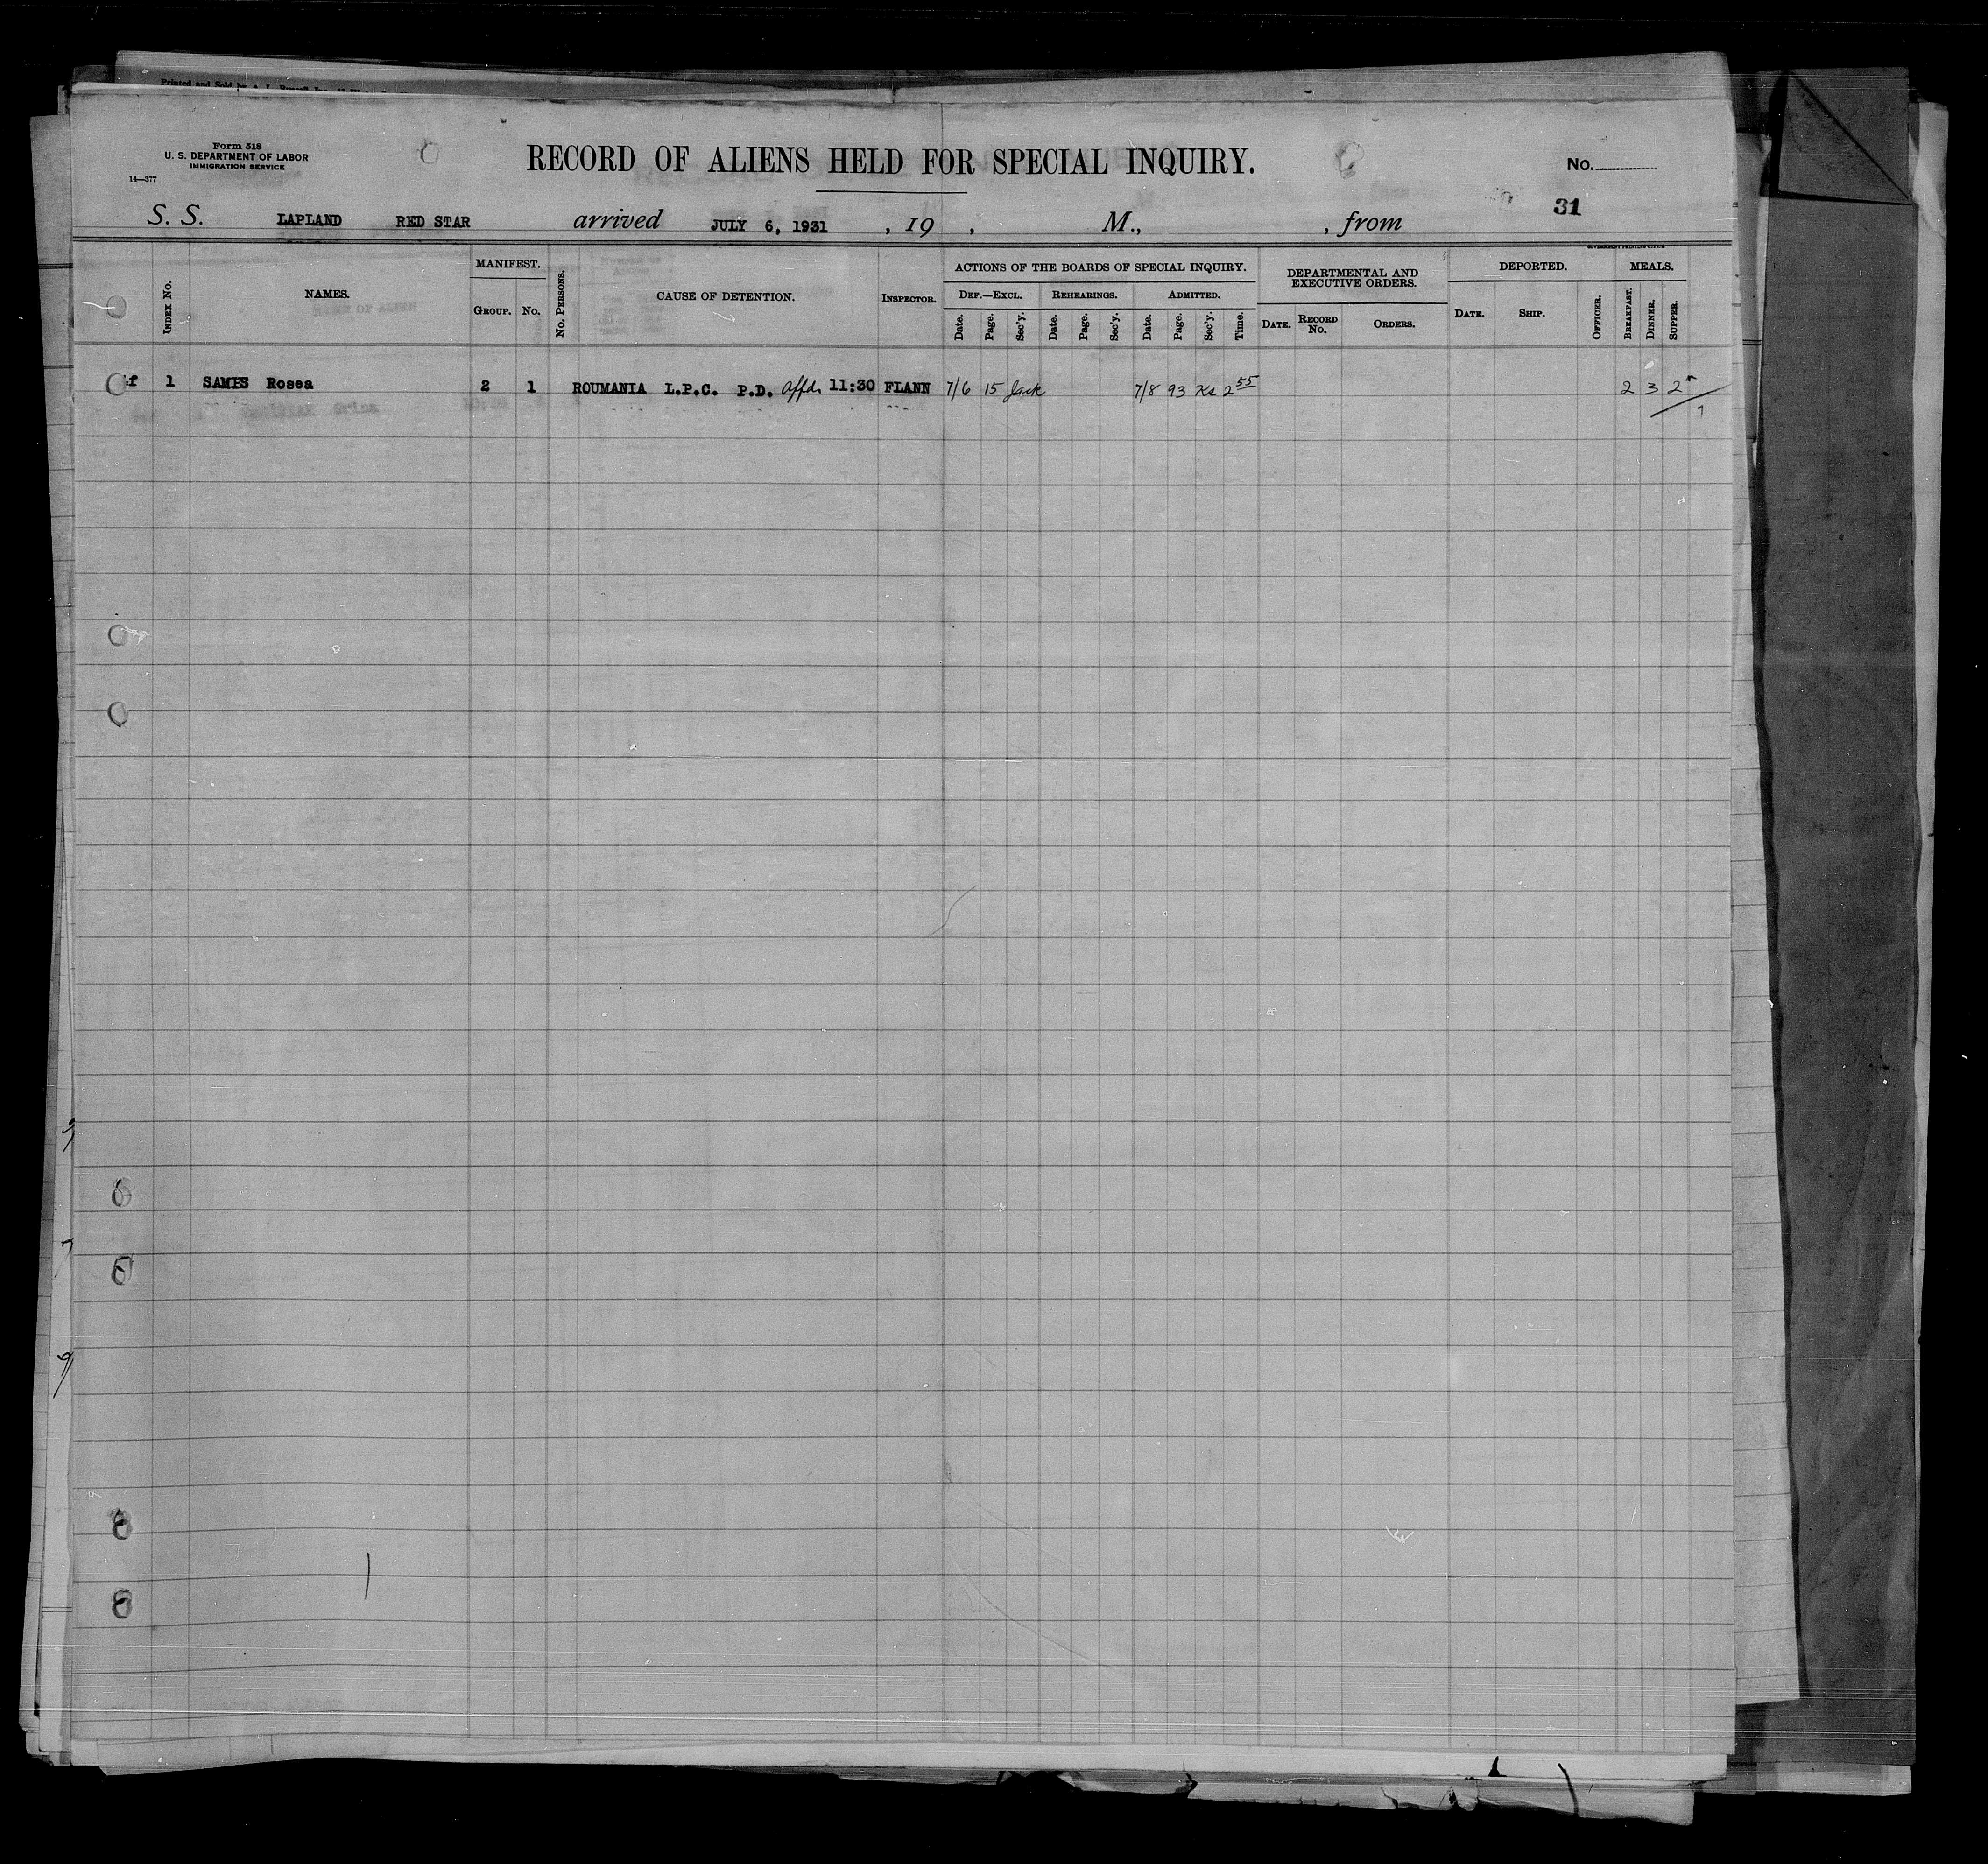 Printed and Sold by
Form 518
U. S. DEPARTMENT OF LABOR
IMMIGRATION SERVICE
14—377
RECORD OF ALIENS HELD FOR SPECIAL INQUIRY.
No.
31
S. S. LAPLAND RED STAR arrived JULY 6, 1931 , 19 , M., , from
INDEX No. NAMES. MANIFEST. No. PERSONS. CAUSE OF DETENTION. INSPECTOR. ACTIONS OF THE BOARDS OF SPECIAL INQUIRY. DEPARTMENTAL AND EXECUTIVE ORDERS. DEPORTED. MEALS.
GROUP. No. DEF.—EXCL. REHEARINGS. ADMITTED. DATE. RECORD No. ORDERS. DATE. SHIP. OFFICER. BREAKFAST. DINNER. SUPPER.
Date. Page. Sec'y. Date. Page. Sec'y. Date. Page. Sec'y. Time.
1f 1 SAMES Rosea 2 1 ROUMANIA L.P.C. P.D. Affd. 11:30 FLANN 7/6 15 Jack 7/8 93 Ks 2 55 2 3 2